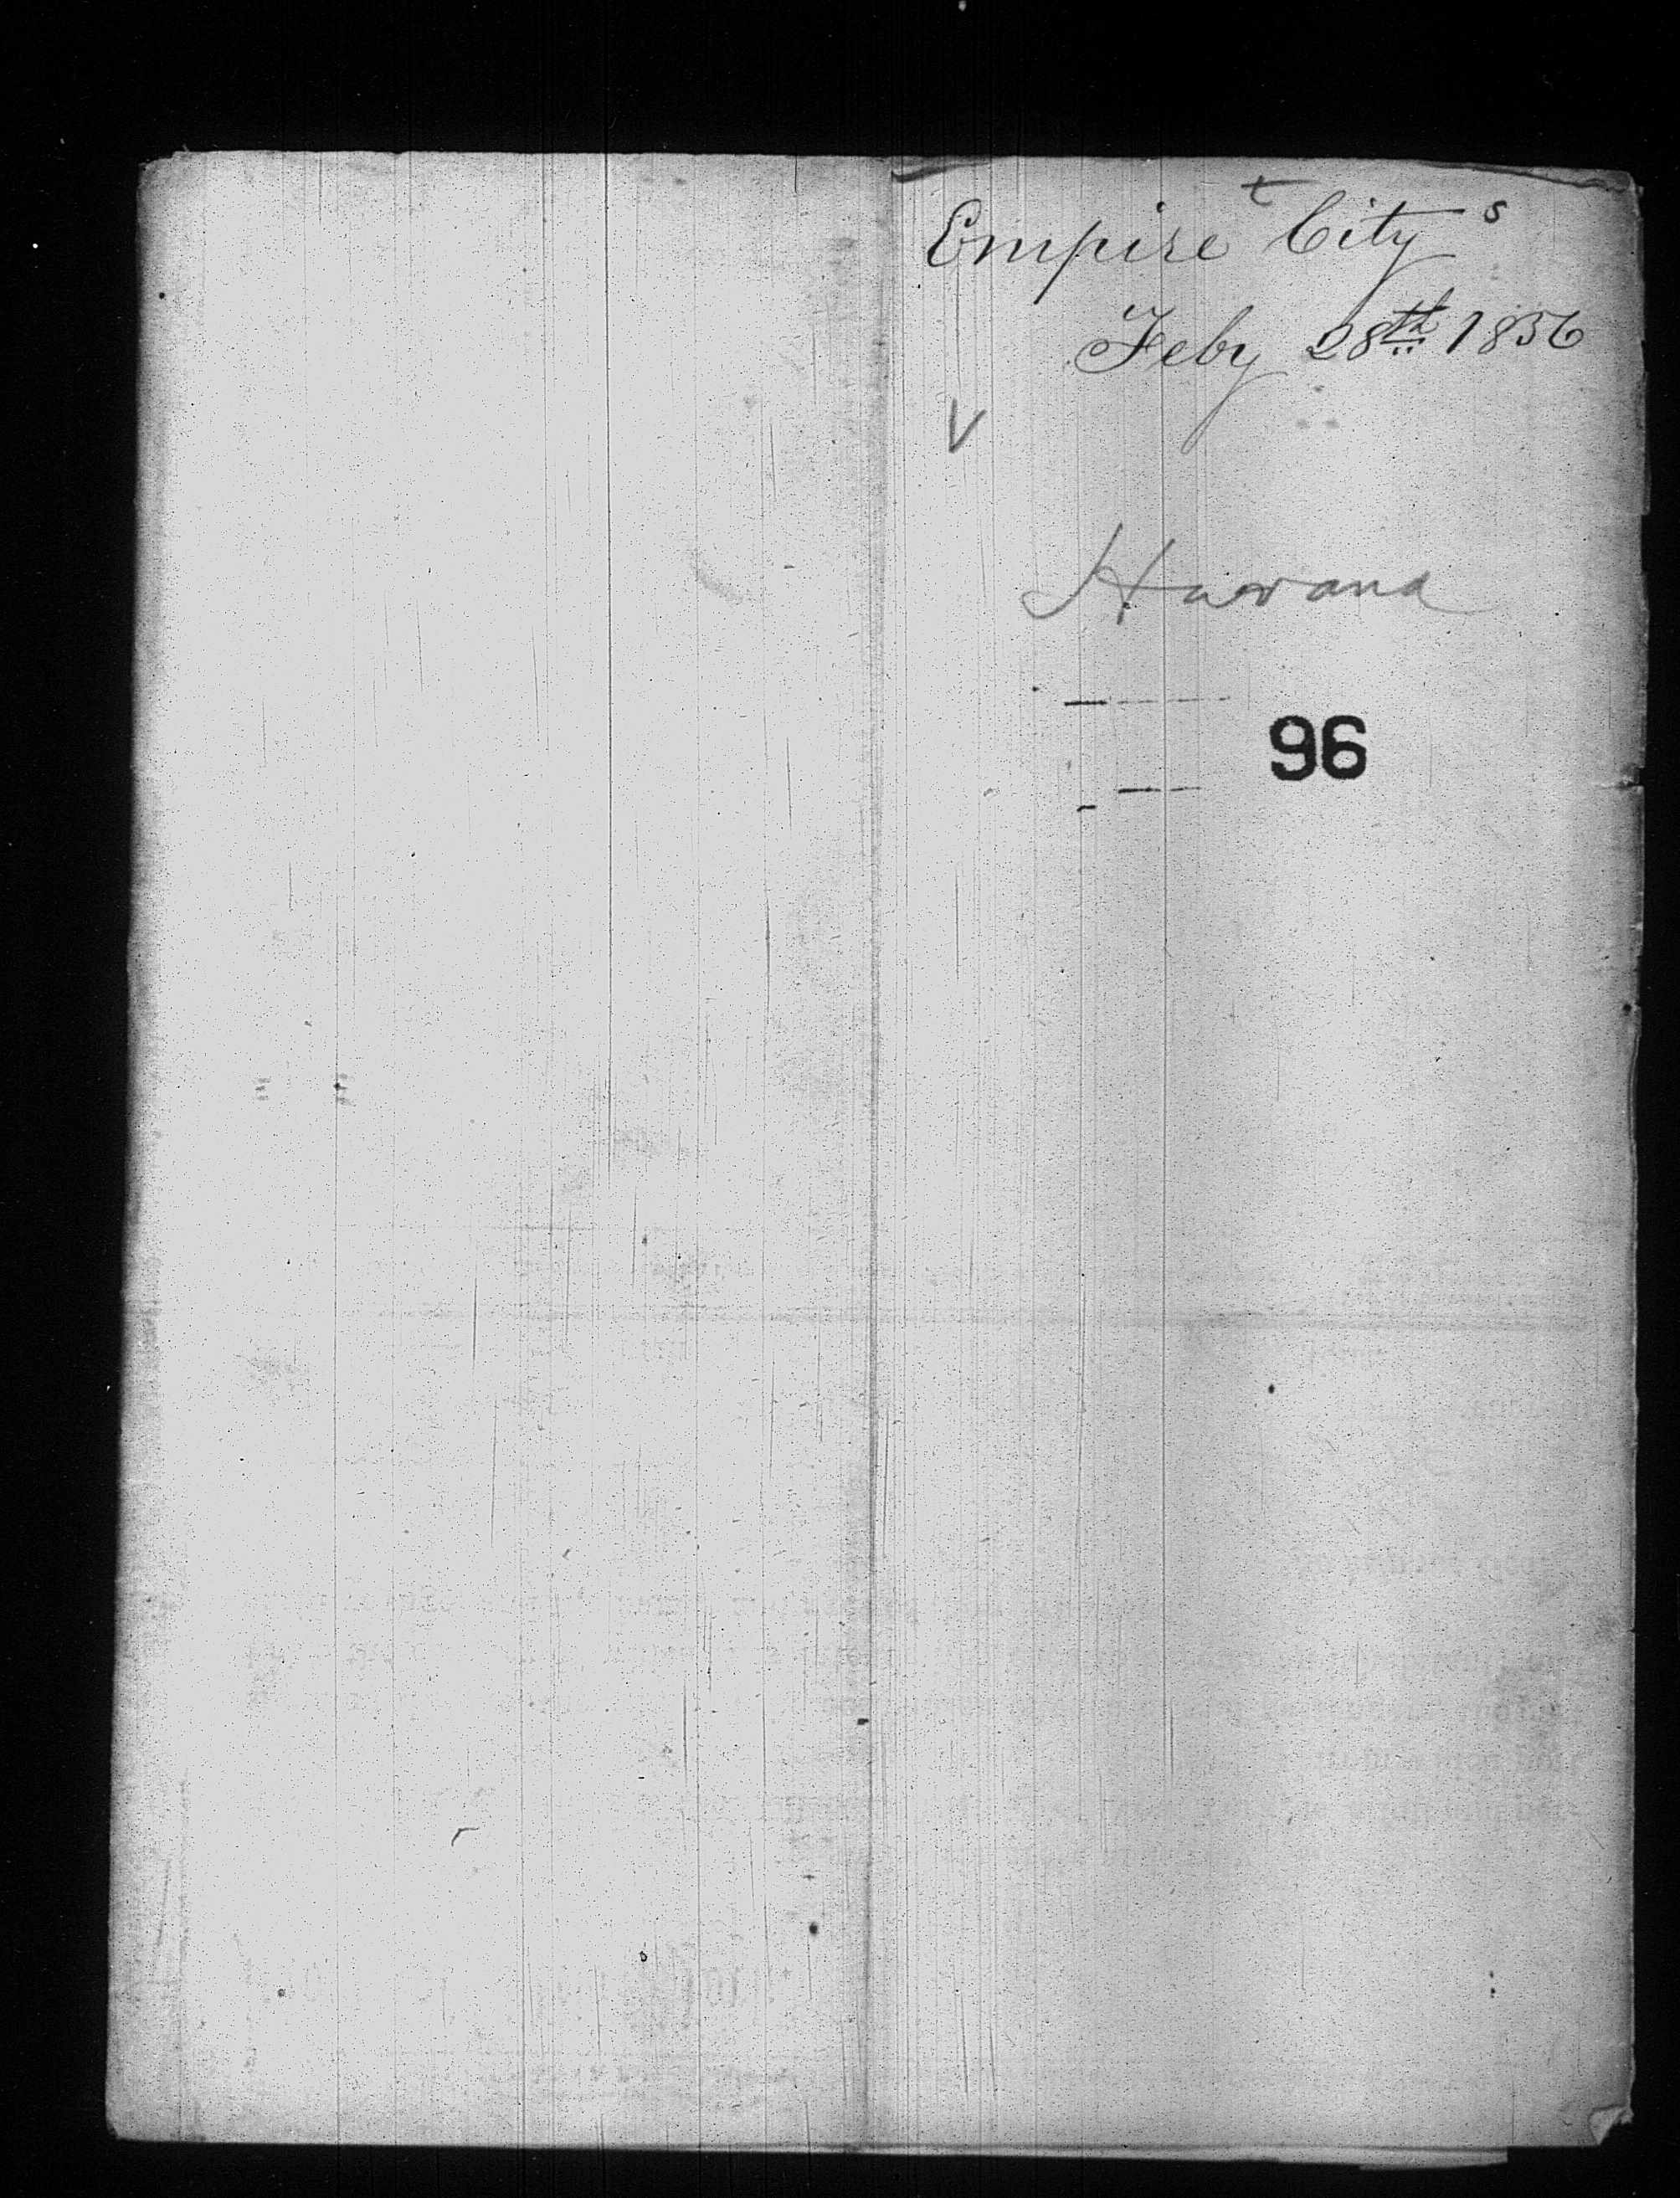 Empire City s
Feby 28th 1856
V
Havana
96